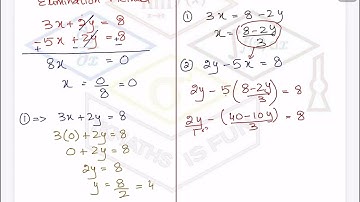 Elimination Method
3x + 2y = 8
- 5x + 2y = 8
+ - -
8x = 0
x = 0/8 = 0
① ⇒ 3x + 2y = 8
3(0) + 2y = 8
0 + 2y = 8
2y = 8
y = 8/2 = 4
① 3x = 8 - 2y
x = (8 - 2y)/3
② 2y - 5x = 8
2y - 5(8 - 2y/3) = 8
2y/1 - (40 - 10y)/3 = 8